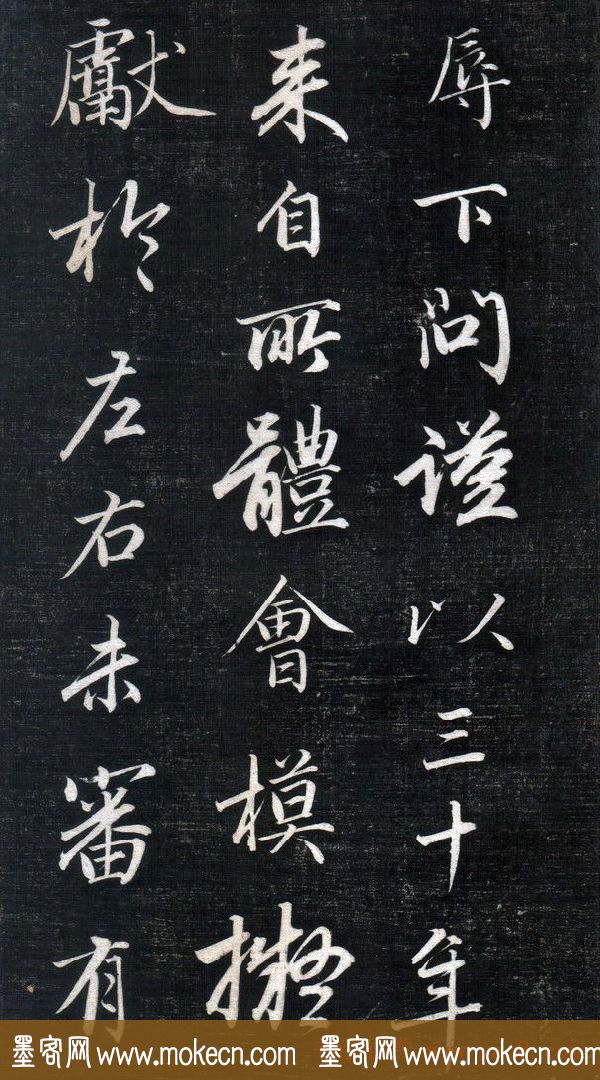 辱下問謹以三十年
来自所體會模擬
獻於左右未審有
墨客网 www.mokecn.com 墨客网 www.mokecn.com